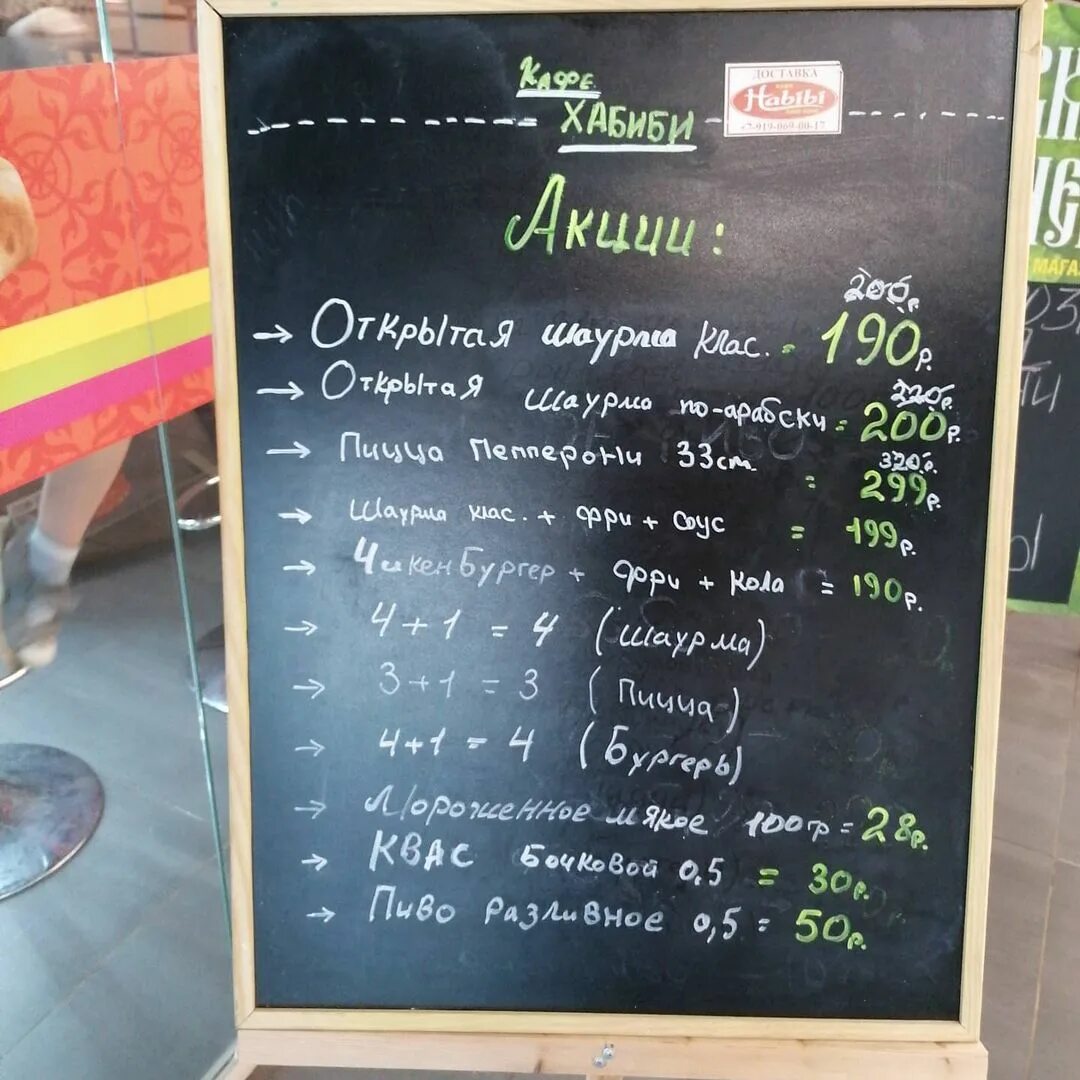 Кафе
ХАБИБИ
ДОСТАВКА
Habibi
+7-919-069-00-17
Акции:
200р.
→ Открытая шаурма клас. = 190р.
220р.
→ Открытая шаурма по-арабски = 200р.
320р.
→ Пицца Пепперони 33см = 299р.
→ Шаурма клас. + фри + соус = 199р.
→ Чикенбургер + фри + кола = 190р.
→ 4+1 = 4 (шаурма)
→ 3+1 = 3 (Пицца)
→ 4+1 = 4 (Бургеры)
→ Мороженное мякое 100гр = 28р.
→ КВАС бочковой 0,5 = 30р.
→ Пиво разливное 0,5 = 50р.